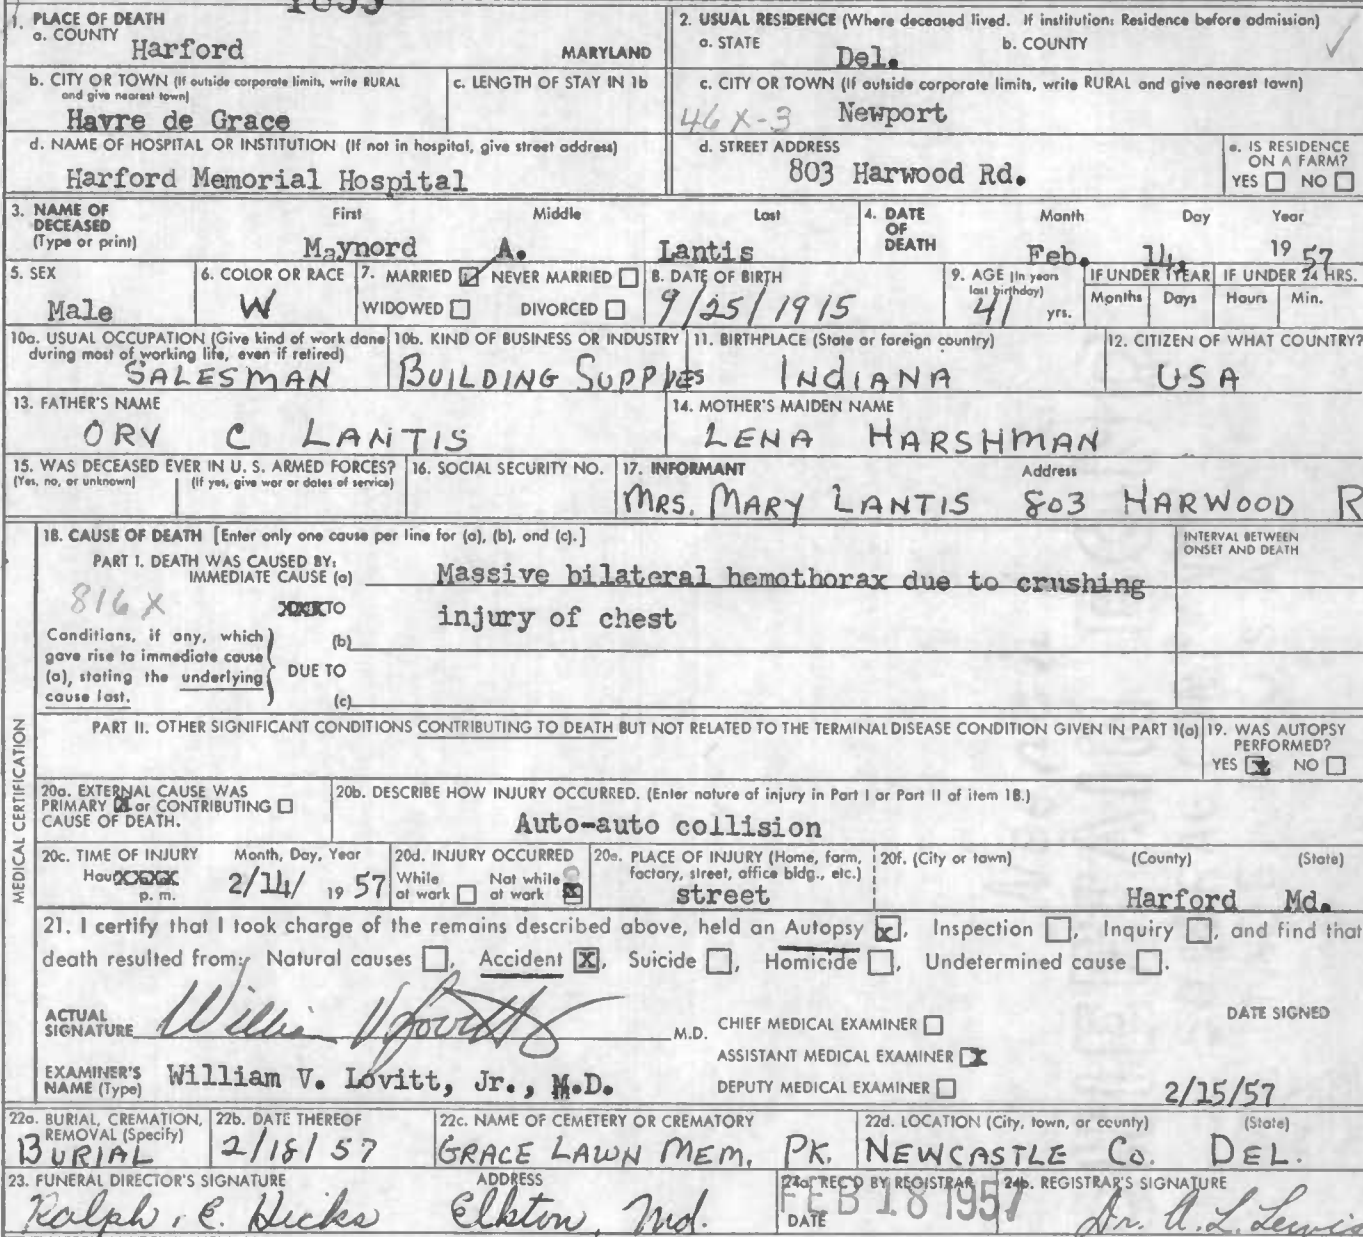 1. PLACE OF DEATH
a. COUNTY
Harford MARYLAND
2. USUAL RESIDENCE (Where deceased lived. If institution: Residence before admission)
a. STATE b. COUNTY
Del.
b. CITY OR TOWN (If outside corporate limits, write RURAL and give nearest town)
Havre de Grace
c. LENGTH OF STAY IN 1b
c. CITY OR TOWN (If outside corporate limits, write RURAL and give nearest town)
46X-3 Newport
d. NAME OF HOSPITAL OR INSTITUTION (If not in hospital, give street address)
Harford Memorial Hospital
d. STREET ADDRESS
803 Harwood Rd.
e. IS RESIDENCE ON A FARM?
YES NO
3. NAME OF DECEASED (Type or print)
First Middle Last
Maynord A. Lantis
4. DATE OF DEATH
Month Day Year
Feb. 14, 1957
5. SEX
Male
6. COLOR OR RACE
W
7. MARRIED NEVER MARRIED
WIDOWED DIVORCED
8. DATE OF BIRTH
9/25/1915
9. AGE (In years last birthday)
41 yrs.
IF UNDER 1 YEAR
Months Days
IF UNDER 24 HRS.
Hours Min.
10a. USUAL OCCUPATION (Give kind of work done during most of working life, even if retired)
SALESMAN
10b. KIND OF BUSINESS OR INDUSTRY
BUILDING SUPPLIES
11. BIRTHPLACE (State or foreign country)
INDIANA
12. CITIZEN OF WHAT COUNTRY?
USA
13. FATHER'S NAME
ORV C LANTIS
14. MOTHER'S MAIDEN NAME
LENA HARSHMAN
15. WAS DECEASED EVER IN U. S. ARMED FORCES?
(Yes, no, or unknown) (If yes, give war or dates of service)
16. SOCIAL SECURITY NO.
17. INFORMANT Address
MRS. MARY LANTIS 803 HARWOOD R
MEDICAL CERTIFICATION
18. CAUSE OF DEATH [Enter only one cause per line for (a), (b), and (c).]
INTERVAL BETWEEN ONSET AND DEATH
PART I. DEATH WAS CAUSED BY:
IMMEDIATE CAUSE (a) Massive bilateral hemothorax due to crushing
816X TO injury of chest
Conditions, if any, which gave rise to immediate cause (a), stating the underlying cause last.
(b)
DUE TO
(c)
PART II. OTHER SIGNIFICANT CONDITIONS CONTRIBUTING TO DEATH BUT NOT RELATED TO THE TERMINAL DISEASE CONDITION GIVEN IN PART 1(a)
19. WAS AUTOPSY PERFORMED?
YES X NO
20a. EXTERNAL CAUSE WAS
PRIMARY X or CONTRIBUTING
CAUSE OF DEATH.
20b. DESCRIBE HOW INJURY OCCURRED. (Enter nature of injury in Part I or Part II of item 18.)
Auto-auto collision
20c. TIME OF INJURY Month, Day, Year
Hour
p. m. 2/14/ 1957
20d. INJURY OCCURRED
While at work Not while at work X
20e. PLACE OF INJURY (Home, farm, factory, street, office bldg., etc.)
street
20f. (City or town) (County) (State)
Harford Md.
21. I certify that I took charge of the remains described above, held an Autopsy X, Inspection, Inquiry, and find that
death resulted from: Natural causes, Accident X, Suicide, Homicide, Undetermined cause.
ACTUAL SIGNATURE William V. Lovitt Jr M.D.
CHIEF MEDICAL EXAMINER
ASSISTANT MEDICAL EXAMINER X
DEPUTY MEDICAL EXAMINER
DATE SIGNED
2/15/57
EXAMINER'S NAME (Type) William V. Lovitt, Jr., M.D.
22a. BURIAL, CREMATION, REMOVAL (Specify)
BURIAL
22b. DATE THEREOF
2/18/57
22c. NAME OF CEMETERY OR CREMATORY
GRACE LAWN MEM. PK.
22d. LOCATION (City, town, or county) (State)
NEWCASTLE Co. DEL.
23. FUNERAL DIRECTOR'S SIGNATURE ADDRESS
Ralph E. Hicks Elkton, Md.
24a. REC'D BY REGISTRAR
DATE FEB 18 1957
24b. REGISTRAR'S SIGNATURE
Dr. A. L. Lewis